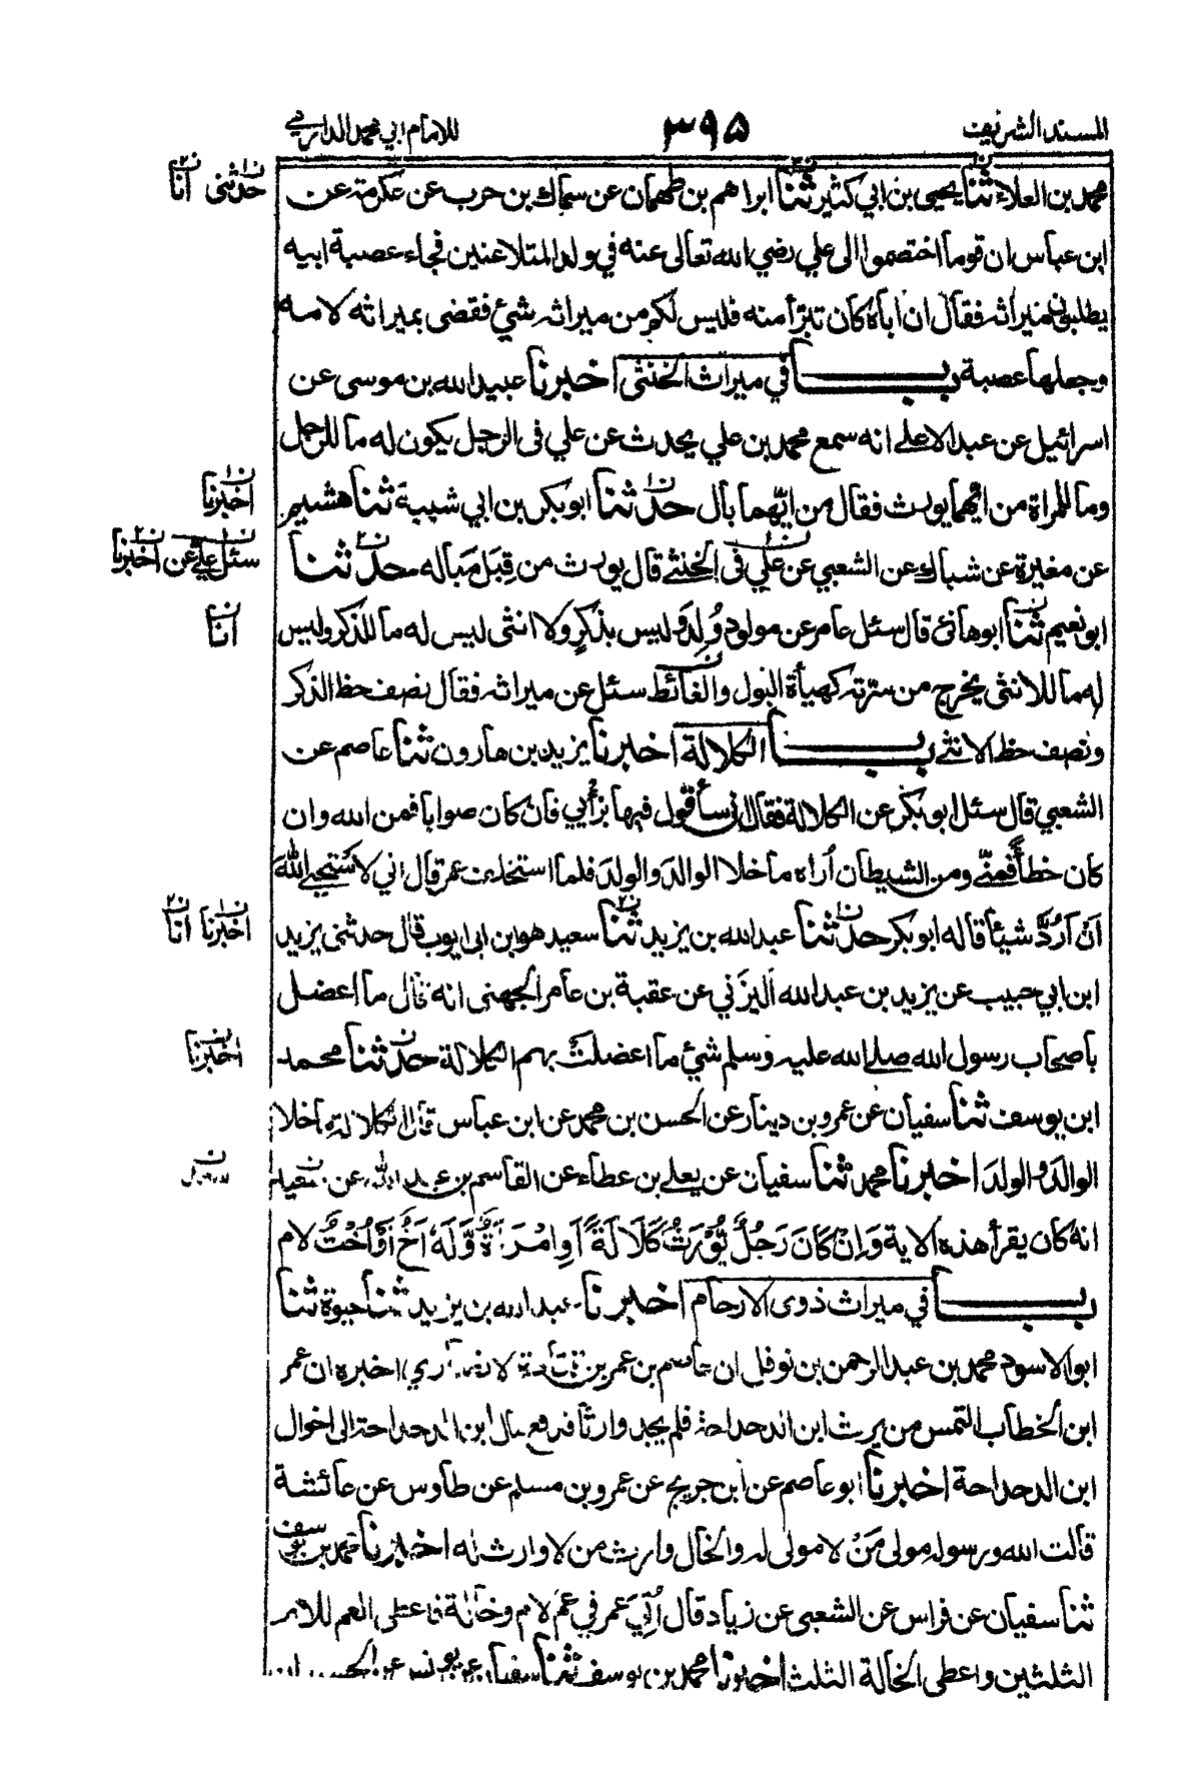 المسند الشريف
٣٩٥
للامام ابي محمد الدارمي
محمد بن العلاء ثنا يحيى بن ابي كثير ثنا ابراهم بن طهمان عن سماك بن حرب عن عكرمة عن
حدثنى انا
ابن عباس ان قوما اختصموا الى علي رضي الله تعالى عنه في ولد المتلاعنين فجاء عصبة ابيه
يطلبون ميراثه فقال ان اباه كان تبرأ منه فليس لكم من ميراثه شئ فقضى بميراثه لامه
وجعلها عصبة باب في ميراث الخنثى اخبرنا عبيد الله بن موسى عن
اسرائيل عن عبد الاعلى انه سمع محمد بن علي يحدث عن علي فى الرجل يكون له ما للرجل
وما للمراة من ايهما يورث فقال من ايّهما بال حدثنا ابو بكر بن ابي شيبة ثنا هشيم
اخبرنا
عن مغيرة عن شباك عن الشعبي عن علي فى الخنثى قال يورث من قِبَل مَباله حدثنا
سئل علي عن اخبرنا
ابو نعيم ثنا ابو هانئ قال سئل عامر عن مولود وُلِدَ وليس بذكرٍ ولا انثى ليس له ما للذكر وليس
انا
له ما للانثى يخرج من سرّته كهيأة البول والغائط سئل عن ميراثه فقال نصف حظ الذكر
ونصف حظ الانثى باب الكلالة اخبرنا يزيد بن هارون ثنا عاصم عن
الشعبي قال سئل ابو بكر عن الكلالة فقال اني سأقول فيها برأيي فان كان صوابا فمن الله وان
كان خطأً فمنّي ومن الشيطان اُراه ما خلا الوالد والولد فلما استخلف عمر قال اني لاَستحيي اللّٰهَ
اَن اَرُدَّ شيئا قاله ابو بكر حدثنا عبد الله بن يزيد ثنا سعيد هو ابن ابى ايوب قال حدثنى يزيد
اخبرنا انا
ابن ابي حبيب عن يزيد بن عبد الله اليزَني عن عقبة بن عامر الجهنى انه قال ما اعضل
باصحاب رسول الله صلے الله عليه وسلم شئ ما اعضلت بهم الكلالة حدثنا محمد
اخبرنا
ابن يوسف ثنا سفيان عن عمرو بن دينار عن الحسن بن محمد عن ابن عباس قال الكلالة ما خلا
الوالد والولد اخبرنا محمد ثنا سفيان عن يعلى بن عطاء عن القاسم بن عبد الله عن سعيد
انه كان يقرأ هذه الاية وَاِنْ كَانَ رَجُلٌ يُّوْرَثُ كَلَالَةً اَوِ امْرَاَةٌ وَّلَهٗ اَخٌ اَوْ اُخْتٌ لام
باب في ميراث ذوى الارحام اخبرنا عبد الله بن يزيد ثنا حيوة ثنا
ابو الاسود محمد بن عبد الرحمن بن نوفل ان عاصم بن عمر بن قتادة الانصاري اخبره ان عمر
ابن الخطاب التمس من يرث ابن الدحداحة فلم يجد وارثا فدفع مال ابن الدحداحة الى اخوال
ابن الدحداحة اخبرنا ابو عاصم عن ابن جريج عن عمرو بن مسلم عن طاوس عن عائشة
قالت الله ورسوله مولى مَنْ لا مولى له والخال وارث من لا وارث له اخبرنا محمد بن يوسف
ثنا سفيان عن فراس عن الشعبى عن زياد قال اُتي عمر في عم لام وخالة فاعطى العم للام
الثلثين واعطى الخالة الثلث اخبرنا محمد بن يوسف ثنا سفيان عن يونس عن الحسن ان